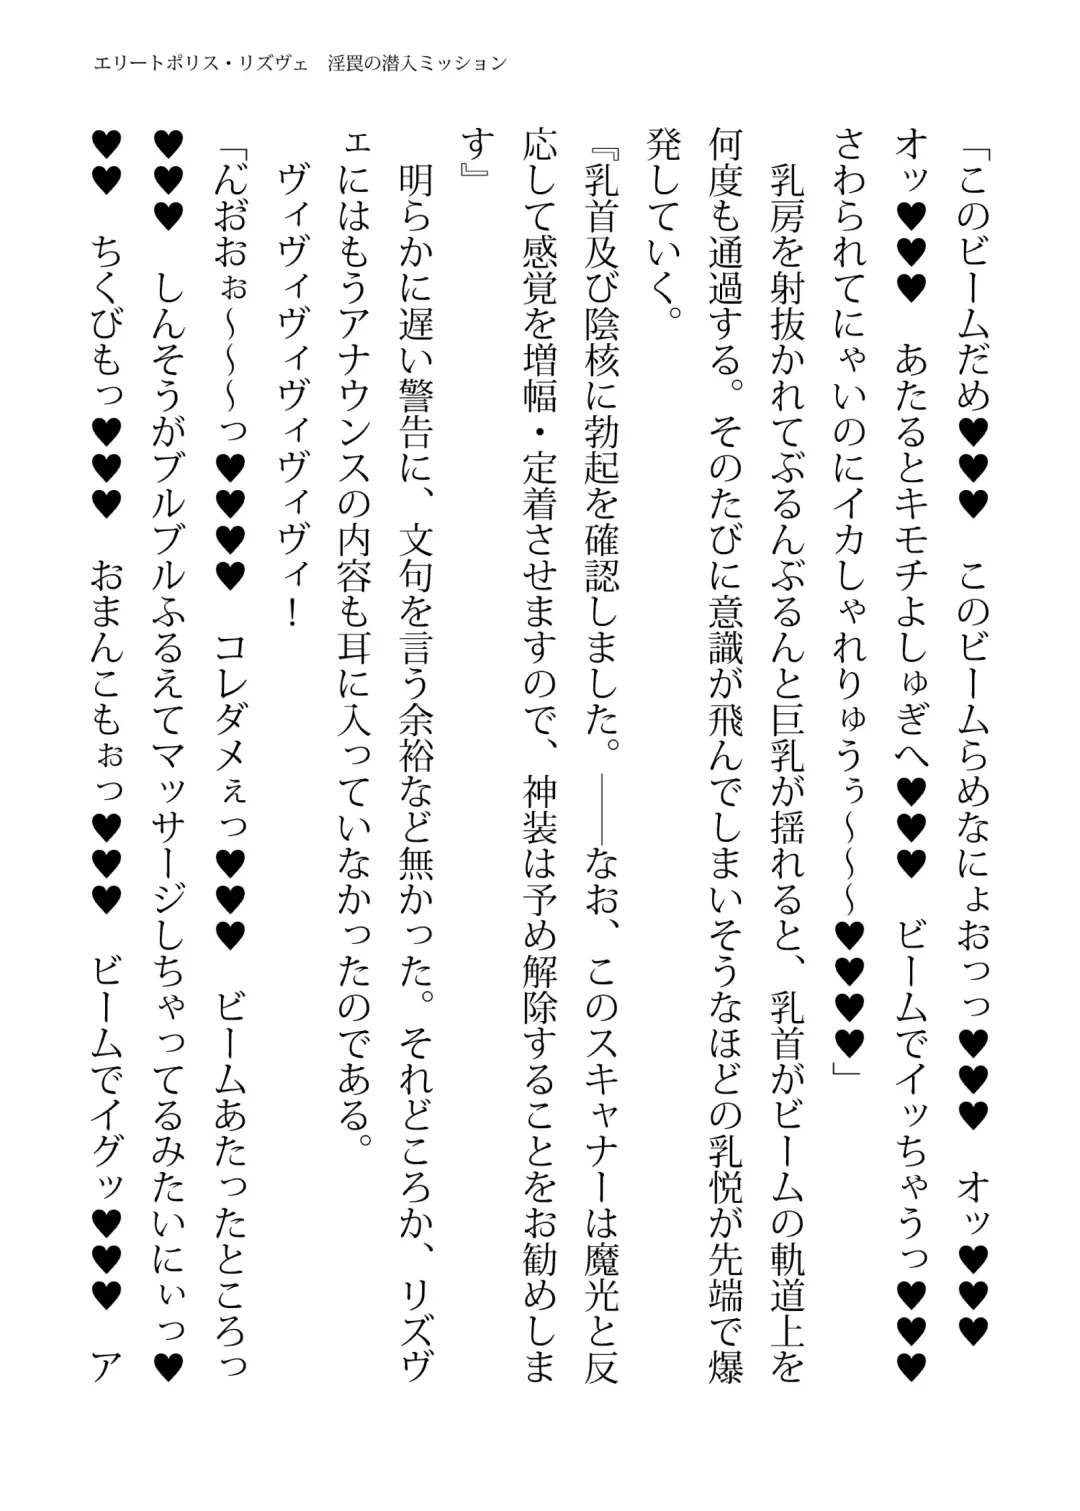 エリートポリス・リズヴェ　淫罠の潜入ミッション
「このビームだめ♥♥♥　このビームらめなにょおっっ♥♥♥　オッ♥♥♥
オッ♥♥♥　あたるとキモチよしゅぎへ♥♥♥　ビームでイッちゃうっ♥♥♥
さわられてにゃいのにイカしゃれりゅうぅ～～～♥♥♥♥」
　乳房を射抜かれてぶるんぶるんと巨乳が揺れると、乳首がビームの軌道上を
何度も通過する。そのたびに意識が飛んでしまいそうなほどの乳悦が先端で爆
発していく。
『乳首及び陰核に勃起を確認しました。――なお、このスキャナーは魔光と反
応して感覚を増幅・定着させますので、神装は予め解除することをお勧めしま
す』
　明らかに遅い警告に、文句を言う余裕など無かった。それどころか、リズヴ
ェにはもうアナウンスの内容も耳に入っていなかったのである。
　ヴィヴィヴィヴィヴィヴィヴィ！
「ん゙お゙おぉ～～～っ♥♥♥♥　コレダメぇっ♥♥♥　ビームあたったところっ
♥♥♥　しんそうがブルブルふるえてマッサージしちゃってるみたいにぃっ♥
♥♥　ちくびもっ♥♥♥　おまんこもぉっ♥♥♥　ビームでイグッ♥♥♥　ア